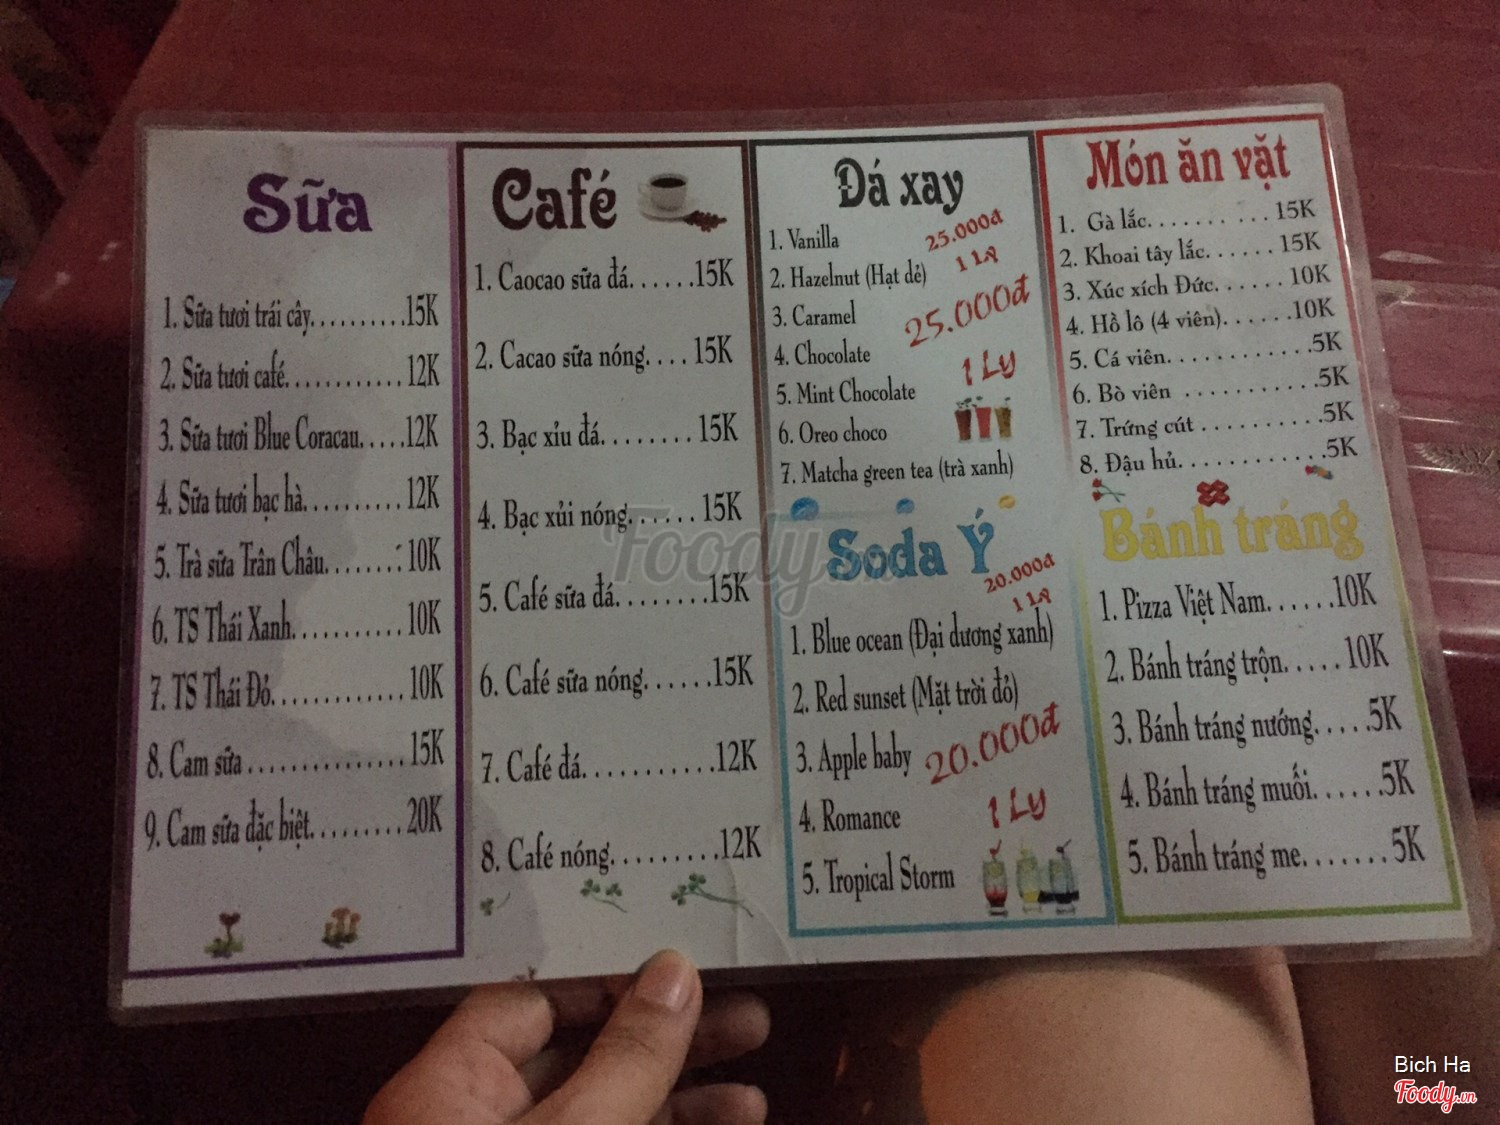 Sữa
1. Sữa tươi trái cây..........15K
2. Sữa tươi café............12K
3. Sữa tươi Blue Coracau.....12K
4. Sữa tươi bạc hà..........12K
5. Trà sữa Trân Châu........10K
6. TS Thái Xanh...........10K
7. TS Thái Đỏ.............10K
8. Cam sữa...............15K
9. Cam sữa đặc biệt.........20K
Café
1. Caocao sữa đá......15K
2. Cacao sữa nóng....15K
3. Bạc xỉu đá........15K
4. Bạc xủi nóng......15K
5. Café sữa đá........15K
6. Café sữa nóng......15K
7. Café đá...........12K
8. Café nóng.........12K
Đá xay
1. Vanilla
25.000đ
1 Ly
2. Hazelnut (Hạt dẻ)
3. Caramel
25.000đ
4. Chocolate
1 Ly
5. Mint Chocolate
6. Oreo choco
7. Matcha green tea (trà xanh)
Soda Ý
20.000đ
1 Ly
1. Blue ocean (Đại dương xanh)
2. Red sunset (Mặt trời đỏ)
3. Apple baby
20.000đ
4. Romance
1 Ly
5. Tropical Storm
Món ăn vặt
1. Gà lắc..........15K
2. Khoai tây lắc......15K
3. Xúc xích Đức......10K
4. Hồ lô (4 viên)......10K
5. Cá viên............5K
6. Bò viên ...........5K
7. Trứng cút ..........5K
8. Đậu hủ............5K
Bánh tráng
1. Pizza Việt Nam......10K
2. Bánh tráng trộn.....10K
3. Bánh tráng nướng.....5K
4. Bánh tráng muối......5K
5. Bánh tráng me.......5K
Foody.vn
Bich Ha
Foody.vn